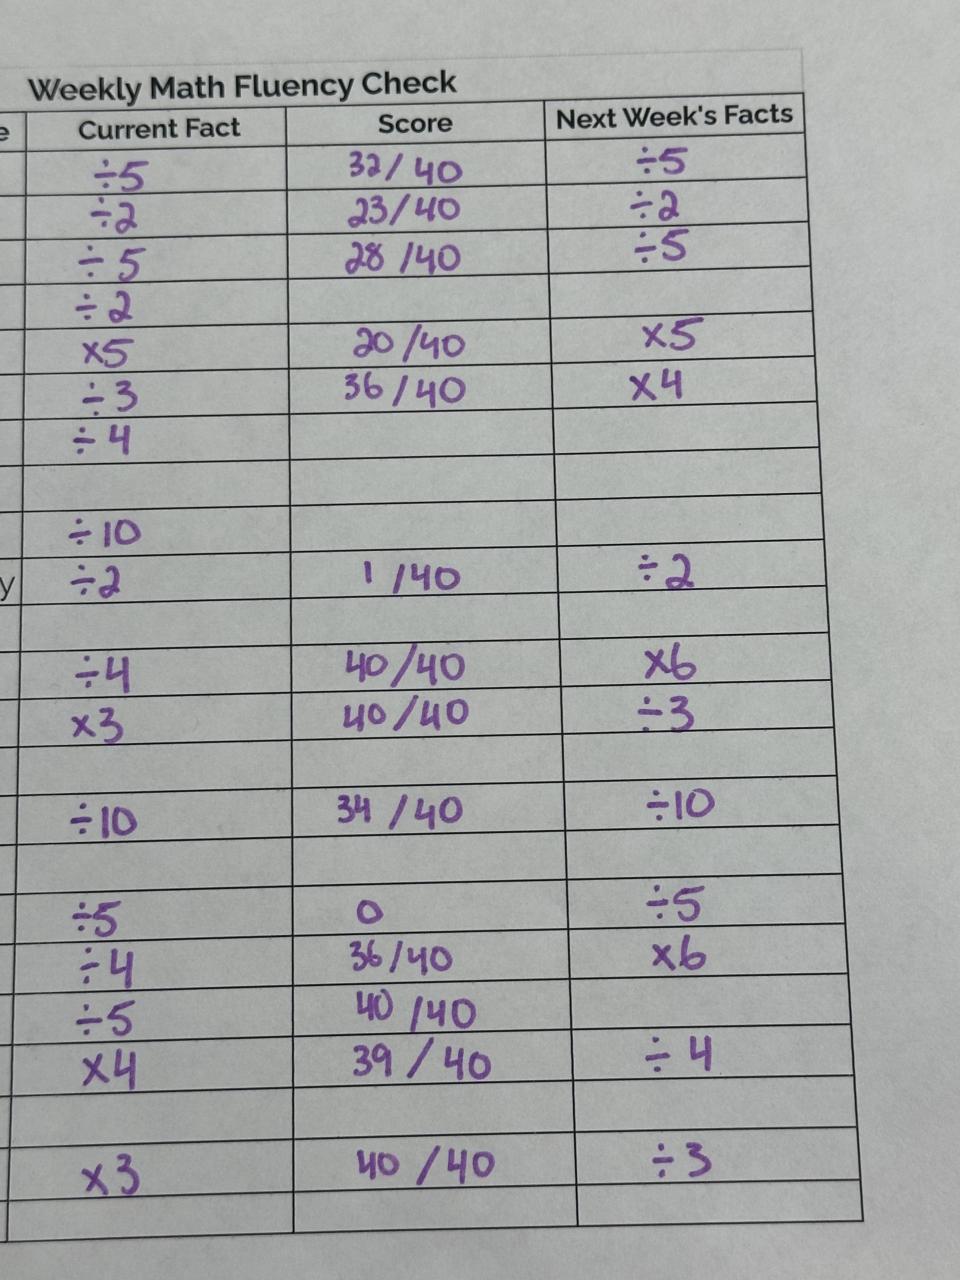 Weekly Math Fluency Check
e Current Fact Score Next Week's Facts
÷5 32/40 ÷5
÷2 23/40 ÷2
÷5 28/40 ÷5
÷2
×5 20/40 ×5
÷3 36/40 ×4
÷4
÷10
y ÷2 1/40 ÷2
÷4 40/40 ×6
×3 40/40 ÷3
÷10 34/40 ÷10
÷5 0 ÷5
÷4 36/40 ×6
÷5 40/40
×4 39/40 ÷4
×3 40/40 ÷3